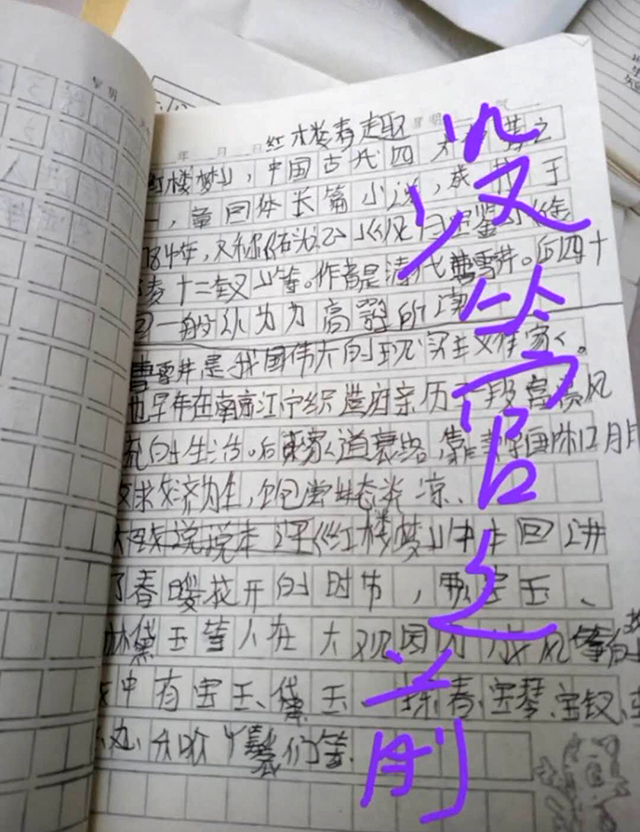 红楼春趣
年 月 日 星期 气
红楼梦》,中国古代四大名著之
一,章回体长篇小说,成书于
784年,又称《石头记》《风月宝鉴》《金
陵十二钗》等。作者是清代曹雪芹。后四十
回一般认为为高鹗所
曹雪芹是我国伟大的现实主义作家。
他早年在南京江宁织造府亲历一段富贵风
流的生活。后来家道衰落,靠卖字画
求救济为生,饱尝世态炎凉、
说说本
《红楼梦》中 回讲
了春暖花开的时节,宝玉、
林黛玉等人在大观园内放风筝的
中有宝玉、黛玉、探春、宝琴、宝钗、
丫鬟们等
没坐官之前
星期